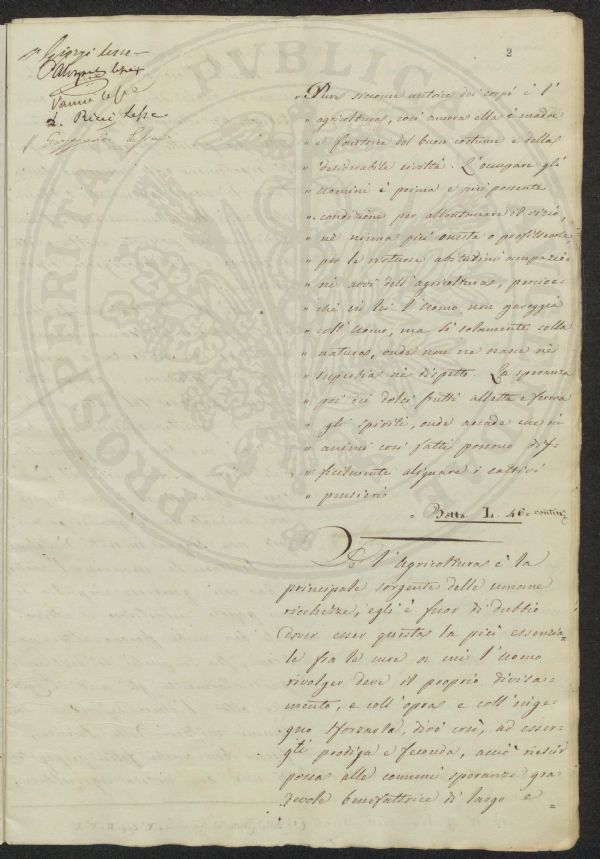 Giorgi lesse
Vanni lesse
L. Ricci lesse
2
„ Pure siccome nutrice dei corpi è l'
„ agricoltura, così ancora ella è madre
„ e fautrice del buon costume e della
„ desiderabile civiltà. L'occupare gli
„ uomini è prima e più possente
„ condizione per allontanare il vizio,
„ nè nenna più onesta o profittevole
„ per le virtuose abitudini occupazio
„ ne avvi dell'agricoltura, percioc=
„ chè in lei l'uomo non gareggia
„ coll'uomo, ma sì solamente colla
„ natura, onde non ne nasce nè
„ superbia nè dispetto. La speranza
„ poi dei dolci frutti alletta e ferma
„ gli spiriti, onde accade che in
„ animi così fatti possono dif=
„ ficilmente allignare i cattivi
„ pensieri
„ Botta L. 46. contin.
Se l'agricoltura è la
principale sorgente delle umane
ricchezze, egli è fuor di dubbio
dover esser questa la più essenzia=
le fra le cure a cui l'uomo
rivolger deve il proprio divisa=
mento, e coll'opra e coll'inge=
gno sforzarla, dirò così, ad esser=
gli prodiga e feconda, acciò riescir
possa alle comuni speranze gra=
devole benefattrice di largo e =
PROSPERITA PVBLICA